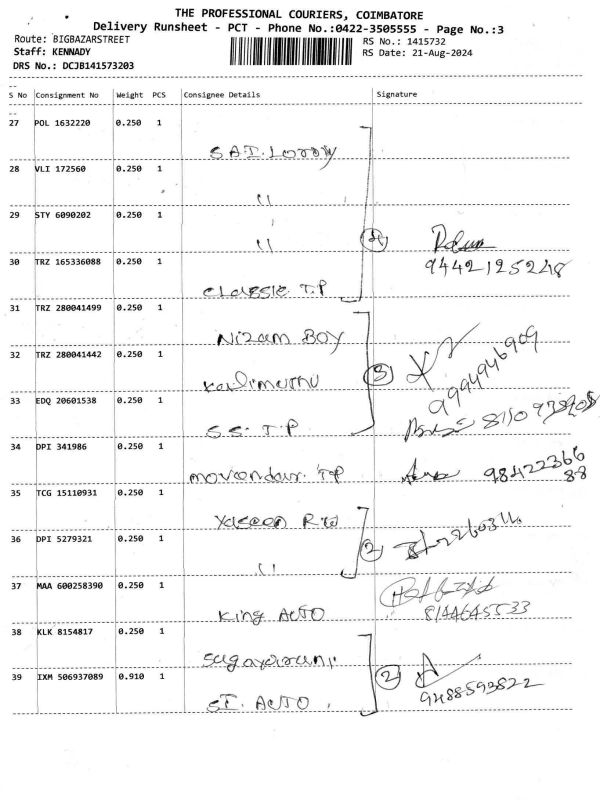 THE PROFESSIONAL COURIERS, COIMBATORE
Delivery Runsheet - PCT - Phone No.:0422-3505555 - Page No.:3
Route: BIGBAZARSTREET
RS No.: 1415732
Staff: KENNADY
RS Date: 21-Aug-2024
DRS No.: DCJB141573203
S No Consignment No Weight PCS Consignee Details Signature
27 POL 1632220 0.250 1
S.A.T. Lorry
28 VLI 172560 0.250 1
"
29 STY 6090202 0.250 1
"
4
9442125248
30 TRZ 165336088 0.250 1
classic T.P
31 TRZ 280041499 0.250 1
Nizam BOY
32 TRZ 280041442 0.250 1
3
33 EDQ 20601538 0.250 1
S.S. T.P
34 DPI 341986 0.250 1
T.P
98422366
88
35 TCG 15110931 0.250 1
Yaseen
36 DPI 5279321 0.250 1
"
2
37 MAA 600258390 0.250 1
King AUTO
8144645533
38 KLK 8154817 0.250 1
39 IXM 506937089 0.910 1
ST. AUTO
2
9488593822